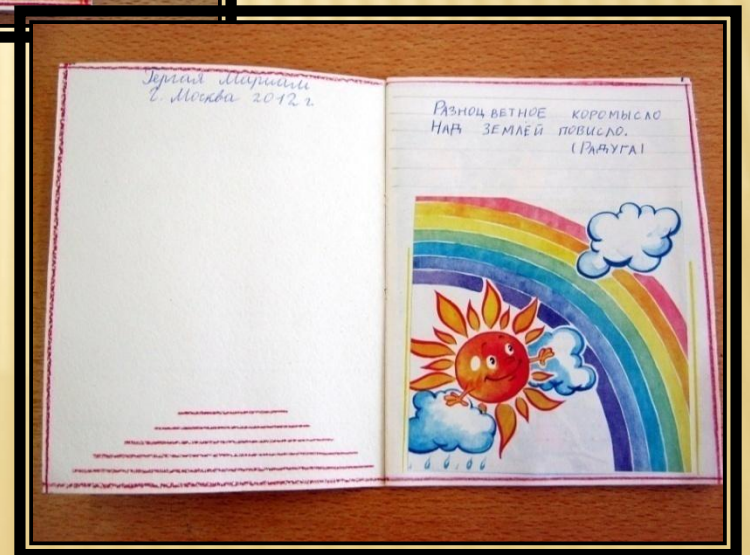 Гергая Мариам
г. Москва 2012 г
Разноцветное коромысло
Над землёй повисло.
(Радуга)